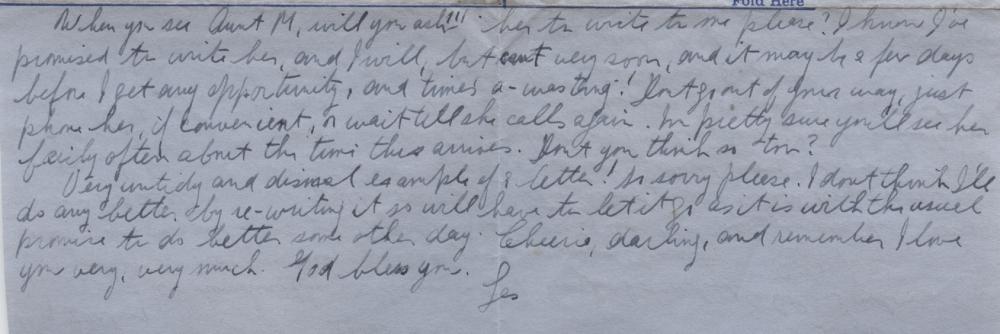 Fold Here
When you see Aunt M, will you ask!!! her to write to me please? I know I've
promised to write her, and I will, but can't very soon, and it may be a few days
before I get any opportunity, and time's a-wasting! Don't go out of your way, just
phone her, if convenient, or wait till she calls again. I'm pretty sure you'll see her
fairly often about the time this arrives. Don't you think so too?
Very untidy and dismal example of a letter! So sorry please. I don't think I'll
do any better by re-writing it so will have to let it go as it is with the usual
promise to do better some other day. Cheerio, darling, and remember I love
you very, very much. God bless you.
Les